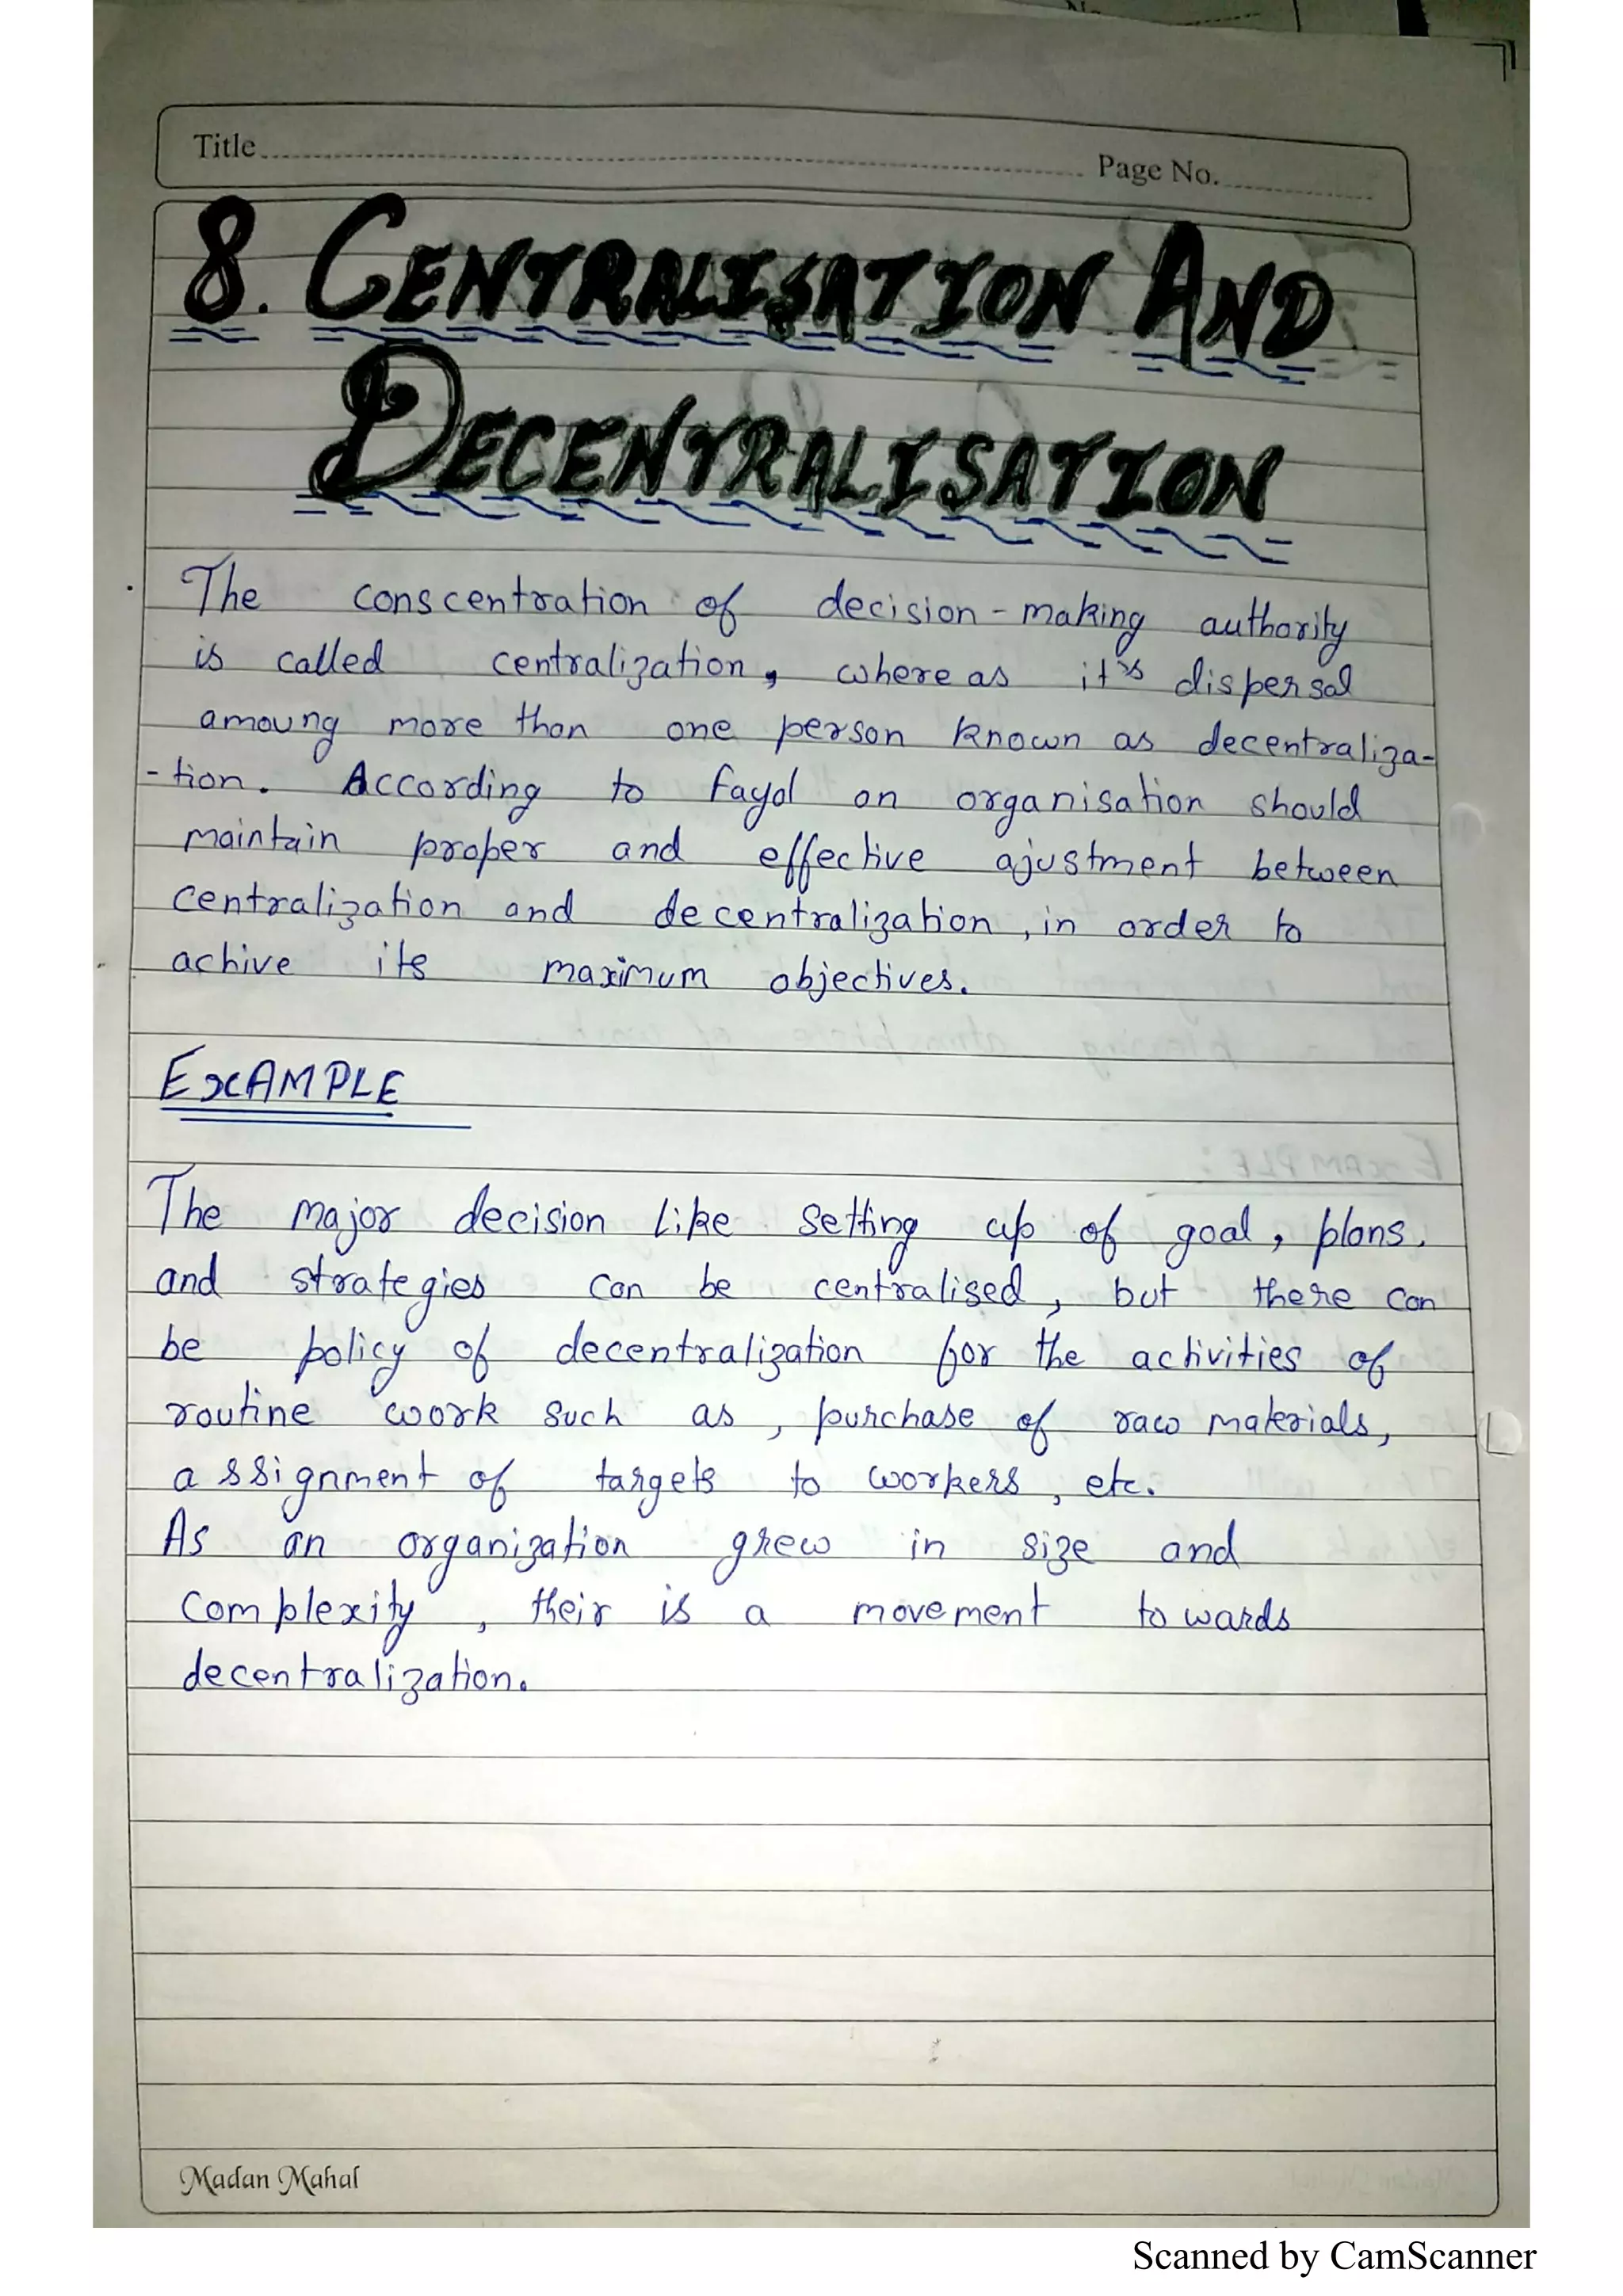 Title
Page No.
8. CENTRALISATION AND
DECENTRALISATION
The conscentration of decision-making authority
is called centralization, where as it's dispersal
amoung more than one person known as decentraliza-
-tion. According to Fayol an organisation should
maintain proper and effective ajustment between
centralization and decentralization, in order to
achive its maximum objectives.
EXAMPLE
The major decision like setting up of goal, plans.
and strategies can be centralised, but there can
be policy of decentralization for the activities of
routine work such as, purchase of raw materials,
assignment of targets to workers, etc.
As an organization grew in size and
complexity, their is a movement towards
decentralization.
Madan Mahal
Scanned by CamScanner